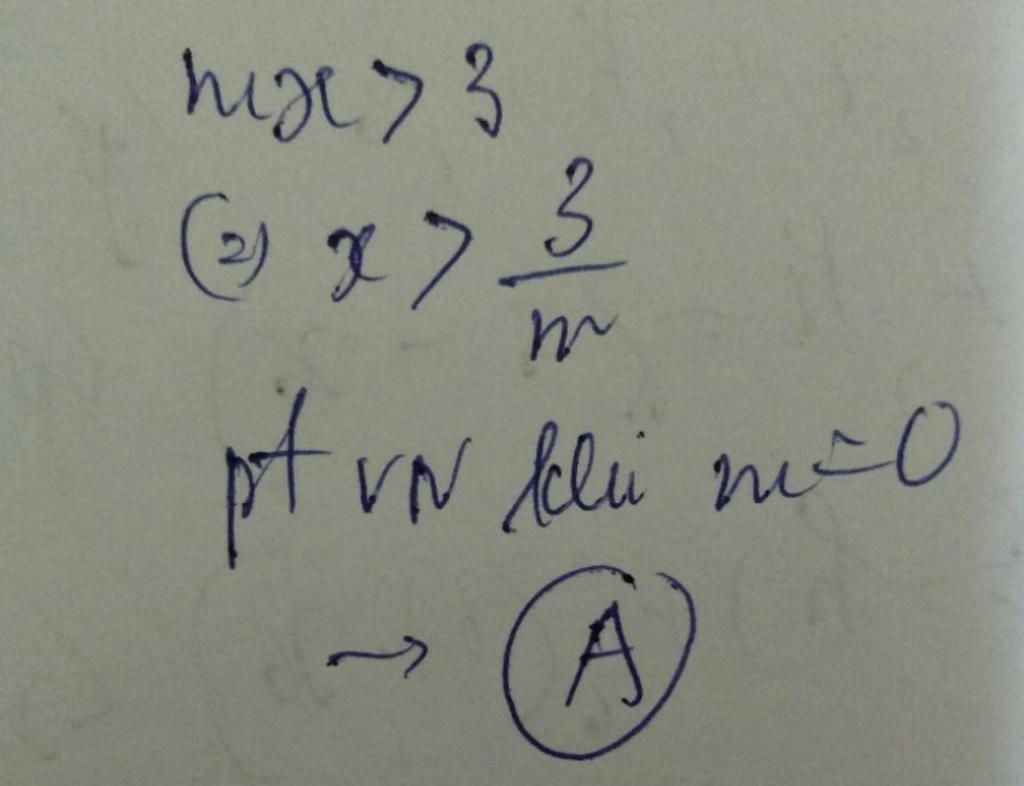 mx > 3
(2) x > 3/m
pt VN khi m = 0
→ A